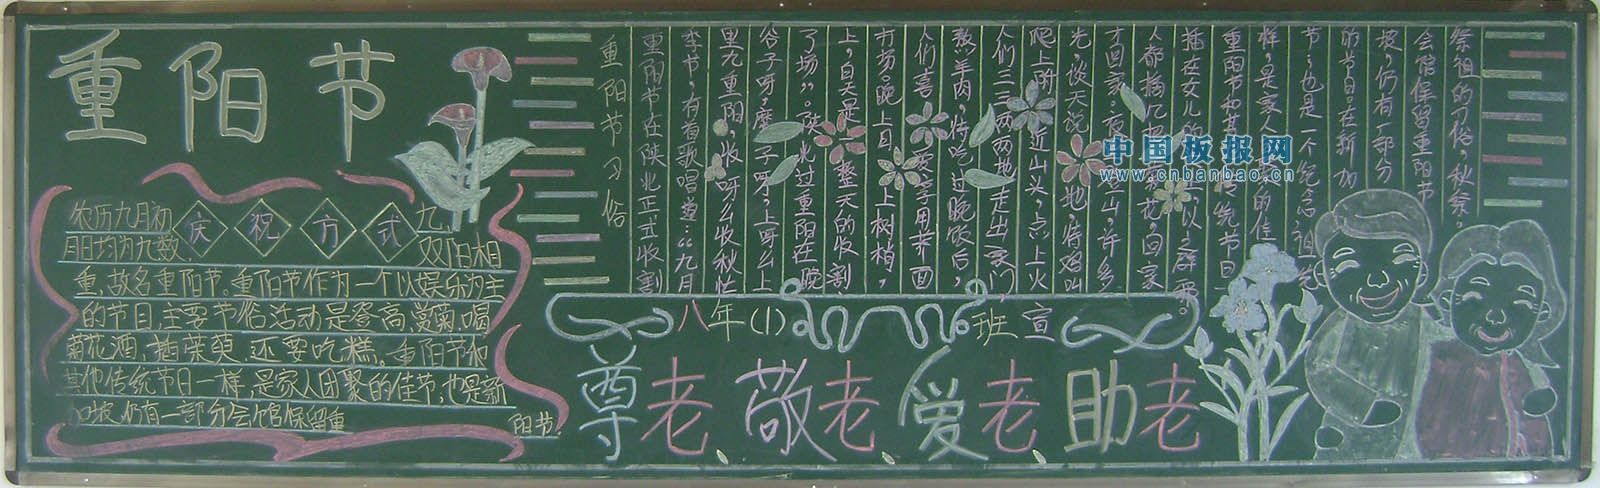 重阳节
庆祝方式
农历九月初九,
月日均为九数,双阳相
重,故名重阳节。重阳节作为一个以娱乐为主
的节日,主要节俗活动是登高、赏菊、喝
菊花酒,插茱萸,还要吃糕。重阳节和
其他传统节日一样,是家人团聚的佳节,也是新
加坡,仍有一部分会馆保留重
阳节。
重阳节习俗
重阳节在陕北正式收割
季节,有首歌唱道:“九月
里九重阳,收呀么收秋忙
谷子呀,糜子呀,上呀么上
了场”。陕北过重阳在晚
上,白天是整天的收割
打场。晚上月上树梢,
人们喜享用荞面
熬羊肉,待吃过晚饭后,
人们三三两两地走出家门,
爬上附近山头,点上火
光,谈天说地,待鸡叫
才回家。夜登山,许多
人都摘几把花,回家
插在女儿的上,以之辟邪。
重阳节和其传统节日
样,是家人的佳
节,也是一个纪念祖先
的节日。在新加
坡,仍有一部分
会馆保留重阳节
祭祖的习俗,秋祭。
中国板报网
www.cnbanbao.cn
八年(1)班宣
尊老、敬老、爱老、助老